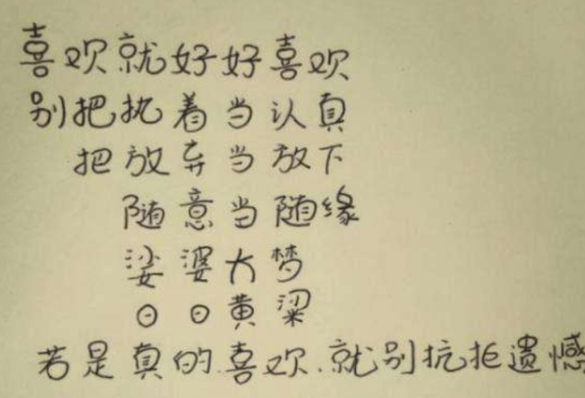 喜欢就好好喜欢
别把执着当认真
把放弃当放下
随意当随缘
娑婆大梦
日日黄粱
若是真的.喜欢.就别抗拒遗憾